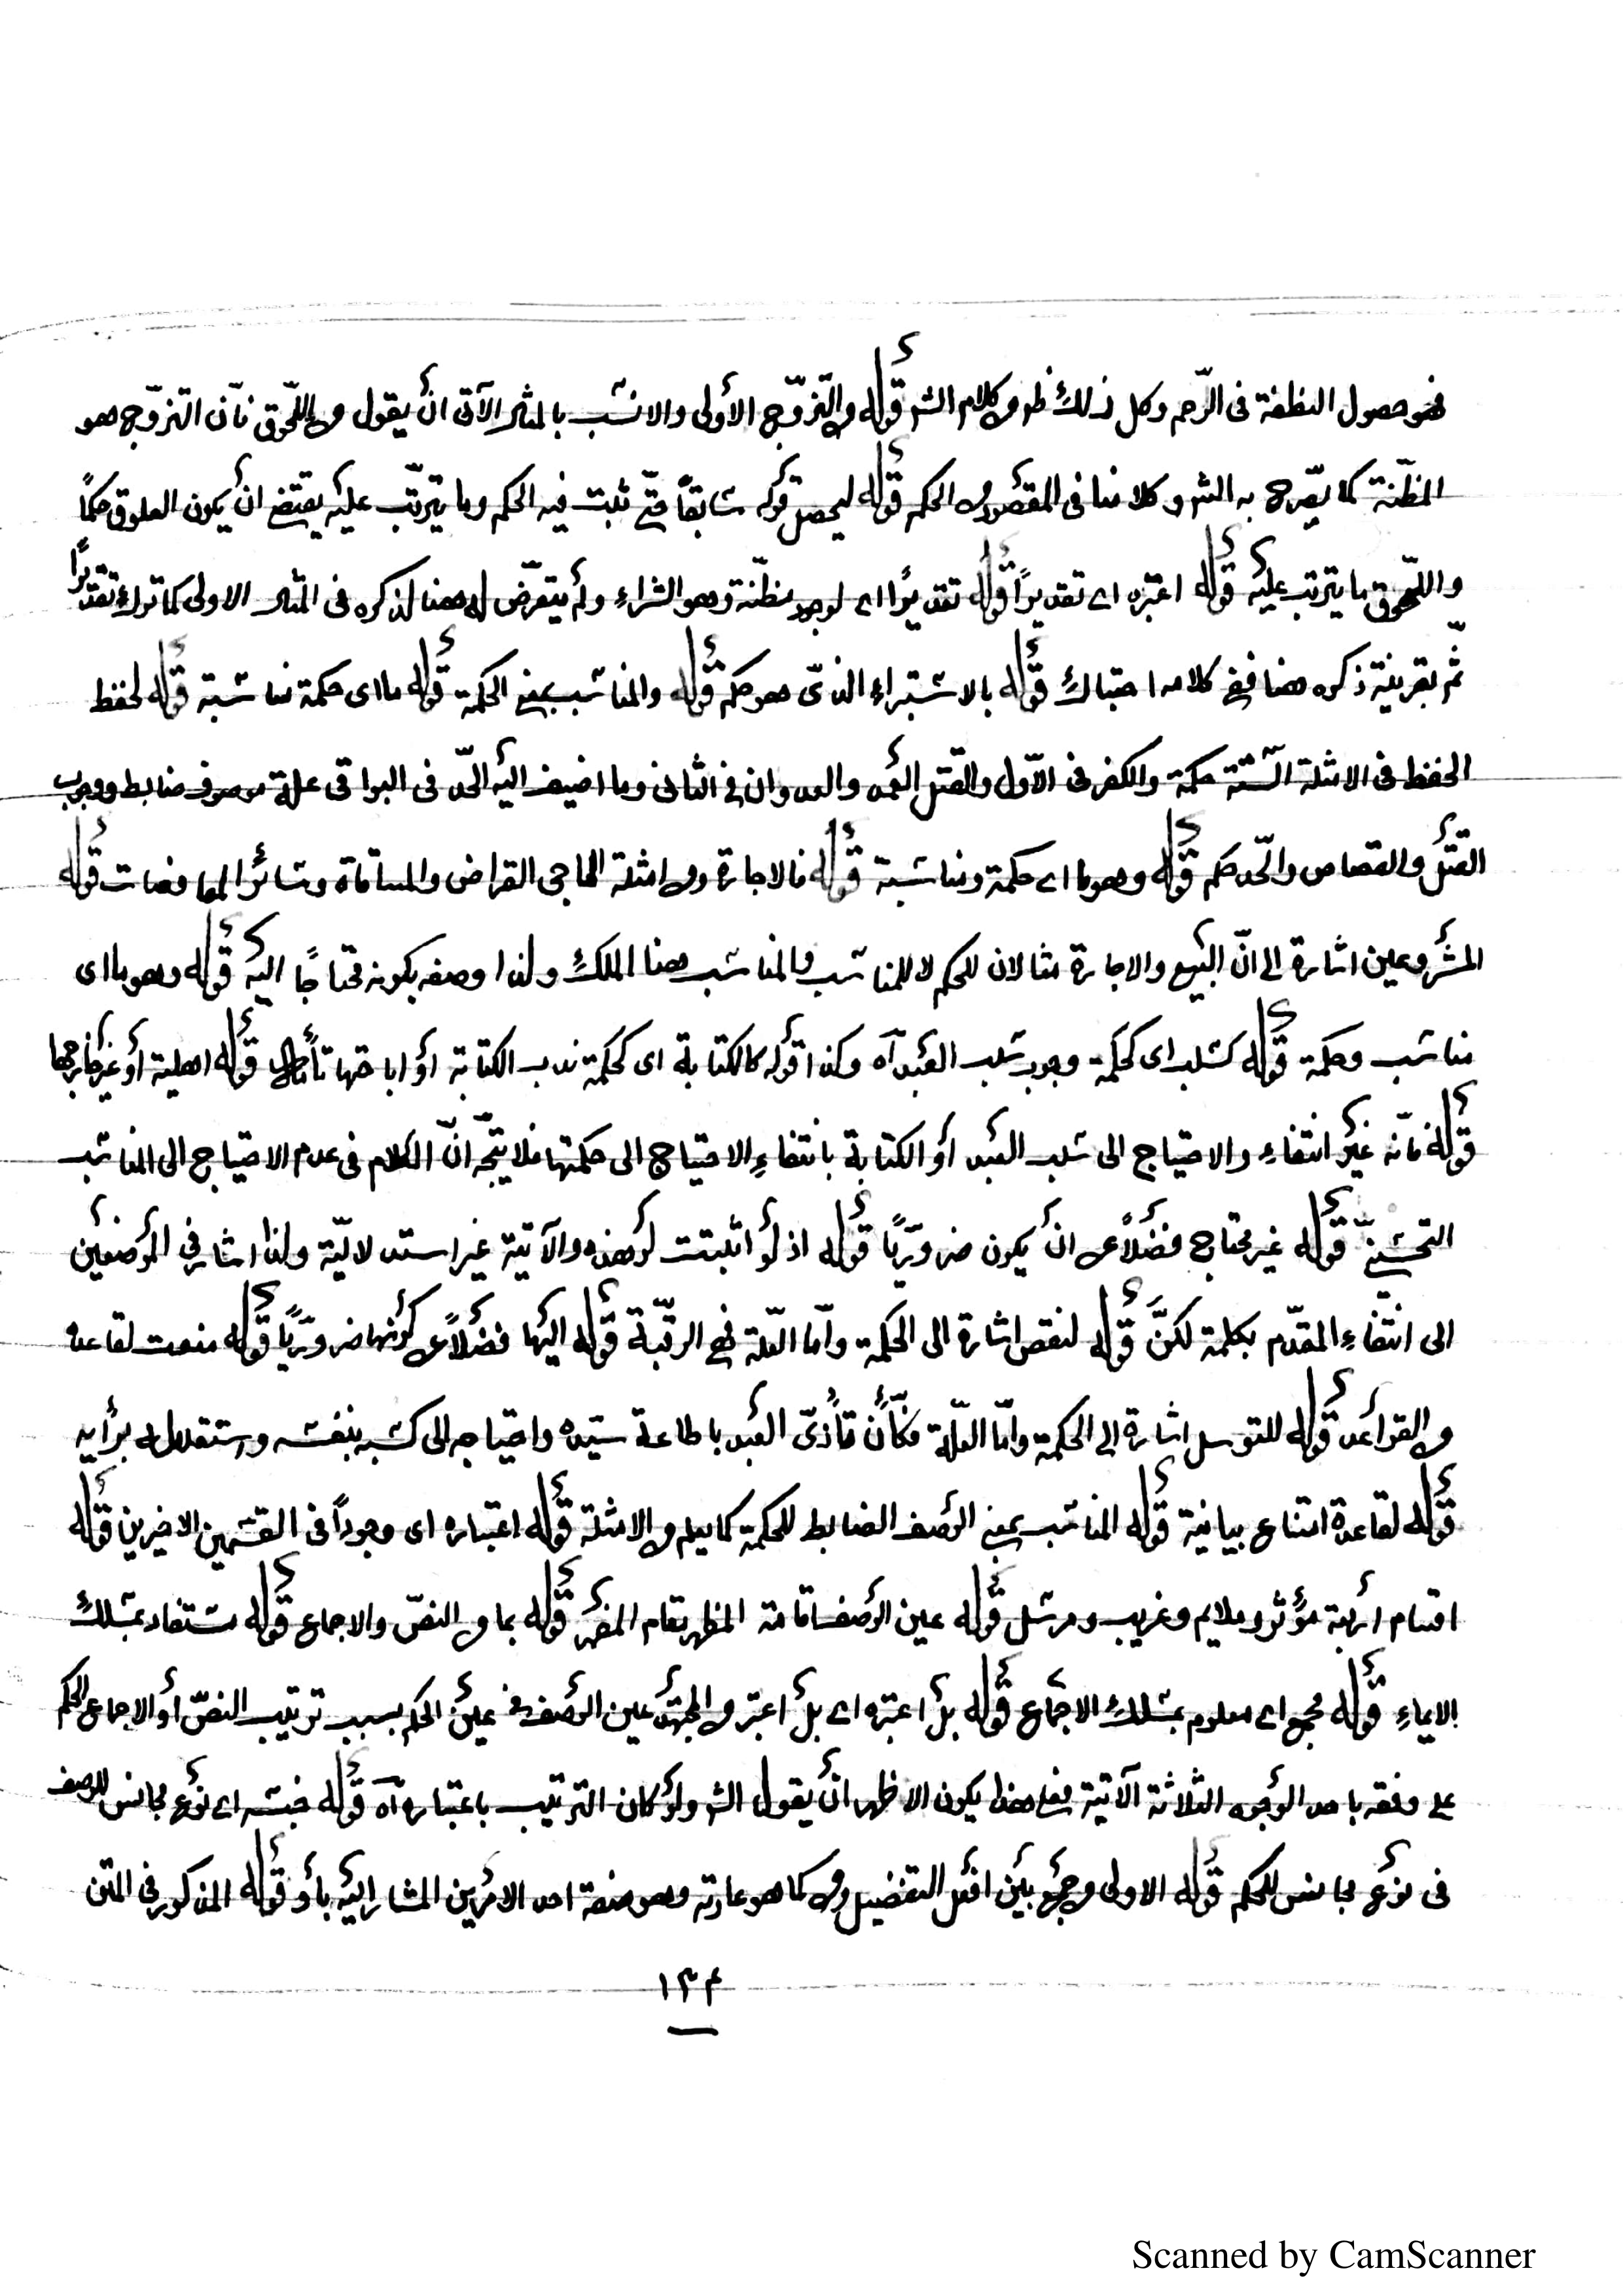 فهو حصول النطفة فى الرّحم وكل ذلك ظ من كلام الشر قوله من التزوّج الأولى والانسب بالمثال الآتى أن يقول من اللّحوق فانّ التزوّج هو
المظنّة كما يصّرح به الشر وكلامنا فى المقصود من الحكم قوله ليحصل قوله سابقاً حتى ثبت فيه الحكم وما يترتّب عليه يقتضى أن يكون العلوق حكماً
واللّحوق ما يترتب عليه قوله اعتبره اى تقديراً قوله تقديراً اى لوجود مظنّة وهو الشراء ولم يتعرّض له ههنا لذكره فى المثال الاولى كما ترك تقديراً
ثمّ بقرينة ذكره هنا ففى كلامه احتباك قوله بالاستبراء الذى هو حكم قوله والمناسب بمعنى الحكمة قوله ما اى حكمة مناسبة قوله لحفظ
الحفظ فى الامثلة الستّة حكمة والكفر فى الاوّل والقتل العمد والعدوان فى الثانى وما اضيف اليه الحّد فى البواقى علة موصوف ضابط ووجوب
القتل والقصاص والحّد حكم قوله وهو ما اى حكمة ومناسبة قوله فالاجارة ومن امثلة الحاجى القراض والمساقاة وسائر المعاوضات قوله
المشروعين اشارة الى انّ البيع والاجارة مثالان للحكم لا للمناسب والمناسب هنا الملك ولذا وصفه بكونه محتاجًا اليه قوله وهو ما اى
مناسب وحكمة قوله كسلب اى كحكمة وجوب سلب العبد آه وكذا قوله كالكتابة اى كحكمة ندب الكتابة أو اباحتها تأمل قوله اهلية أو غير
قوله فانّه غير انتفاء والاحتياج الى سلب العبد أو الكتابة بانتفاء الاحتياج الى حكمتها فلا يتجّه انّ الكلام فى عدم الاحتياج الى المناسب
التحسينىّ قوله غير محتاج فضلاً عن أن يكون ضروريًّا قوله اذ لو اثبتت لو هذه والآتية غير استدلاليّة ولذا اشار فى الموضعين
الى انتفاء المقدّم بكلمة لكنّ قوله لنقص اشارة الى الحكمة وامّا العلّة فهى الرقيّة قوله اليها فضلاً عن كونها ضروريًّا قوله منعت لقاعدة
من القواعد قوله للتوسل اشارة الى الحكمة وامّا العلّة فكأن تأذّى العبد باطاعة سيّده واحتياجه الى كسبه بنفسه واستقلاله برأيه
قوله لقاعدة امتناع بيانية قوله المناسب بمعنى الوصف الضابط للحكمة كما يعلم من الامثلة قوله اعتباره اى وجوداً فى القسمين الاخيرين قوله
اقسام أربعة مؤثر وملايم وغريب ومرسل قوله عين الوصف اقامة المظهر مقام المضمر قوله بما من النصّ والاجماع قوله مستفاد بمسلك
الايماء قوله مجمع اى معلوم بمسلك الاجماع قوله بل اعتبره اى بل اعتبر المجتهد عين الوصف فى عين الحكم بسبب ترتيب النصّ أو الاجماع الحكم
على وفقه باحد الوجوه الثلاثة الآتية فعلى هذا يكون الاظهر أن يقول الشر ولو كان الترتيب باعتباره آه قوله جنسه اى نوع مجانس للوصف
فى نوع مجانس للحكم قوله الاولى من جمع بين افعل التفضيل ومن كما هو عادته وهو صفة احد الامرين المشار اليه بأو قوله المذكور فى المتن
١٣٤
Scanned by CamScanner